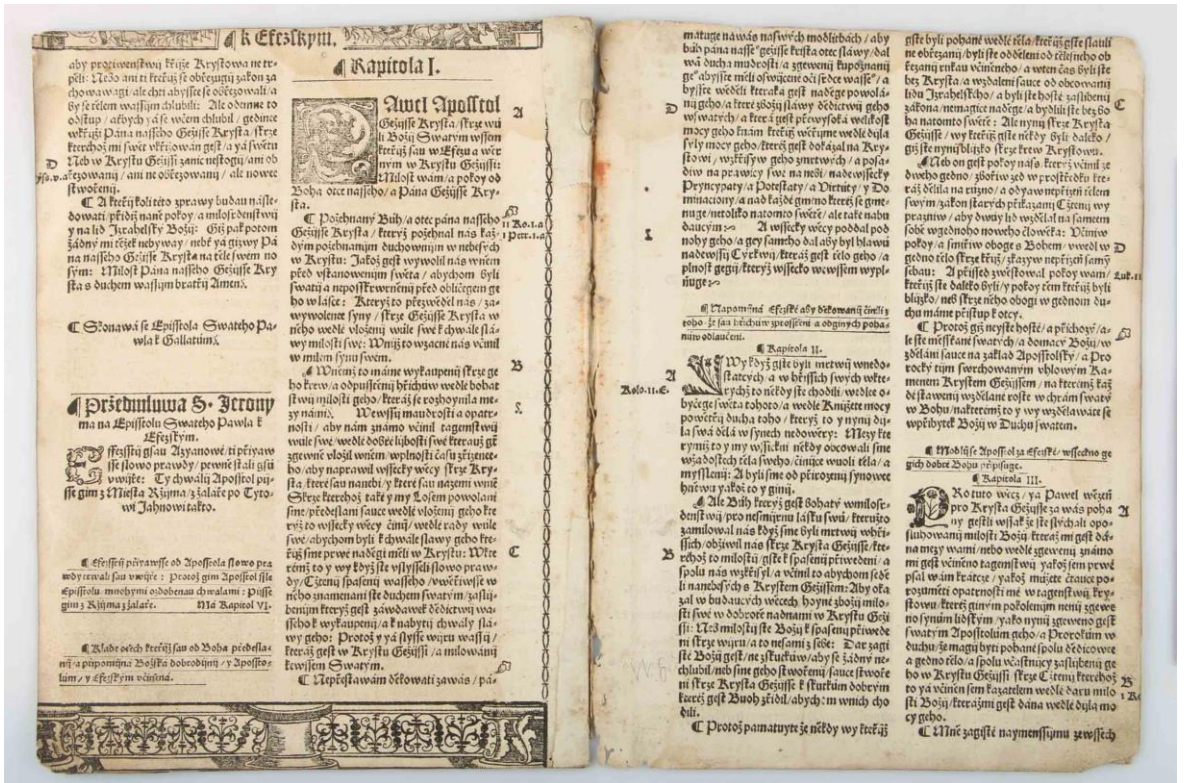 k Efezským.
aby protiwenstwij křijže Krystowa ne tr-
pěli: Nebo ani ti kteřijž se obřezugij zákon za
chowáwagij / ale chtij abyšte se obřezowali / a
by se tělem wassijm chlubili: Ale odemne to
odstup / abych yá se wčem chlubil / gedinee
wkřijži Pána nasseho Gežijsse Krysta / skrze
kterehož mi swět vkřižowán gest / a yá swětu
Neb w Krystu Gežissi zanic nestogij / ani ob
řezowanij / ani ne obřezowanij / ale nowee
stwořenij.
D
¶ A kteřij koli této zprawy budau násle-
dowati / přidiž naně pokoy / a milosrdenstwij
y na lid Izrahelský Božij: Giž pak potom
žádný mi těžek nebyway / nebť ya gizwy Pá
na nasseho Gežisse Krysta na těle swem no
sým: Milost Pána nasseho Gežijsse Kry
sta s duchem wassijm bratřij Amen.
¶ Skonáwá se Episstola Swateho Pa-
wla k Gallatům.
¶ Předmluwa S. Jerony
ma na Episstolu Swateho Pawla k
Efezským.
Effezsstij gsau Azyanowé / ti přiyaw
sse slowo prawdy / pewně stáli gsú
v wijře: Ty chwálij Apostol pij-
sse gim z Miesta Ržijma / z žaláře po Tyto-
wi Jahnowi takto.
¶ Efezsstij přiyawsse od Aposstola slowo pra
wdy trwali sau v wijře: Protož gim Aposstol ssle
Episstolu mnohymi ozdobenau chwalami: Pijsse
gim z Ržijma z žaláře. Má Kapitol VI.
¶ Klade o těch kteřijž sau od Boha předesla-
nij / a připomijná Božská dobrodinij / y Apossto-
lům / y Efezským včiněná.
¶ Kapitola I.
PAwel Aposstol
Gežijsse Krysta / skrze wů
li Božij Swatým wssem
kteřijž sau w Efezu a wěr
ným w Krystu Gežijssi:
Milost wám / a pokoy od
Boha otce nasseho / a Pána Gežijsse Kry-
sta.
A
¶ Požehnaný Bůh / a otec pána nasseho
Gežijsse Krysta / kterýž požehnal nás kaž-
dým požehnánijm duchownijm w nebesých
w Krystu: Jakož gest wywolil nás wněm
před vstanowenijm swěta / abychom byli
swatij a neposskwrněnij před obličegem ge
ho wlásce: Kterýž to přezwěděl nás / za-
wywolené syny / skrze Gežijsse Krysta w
něho wedlé vloženij wůle swé k chwále slá-
wy milosti swé: Wnijž to wzácné nás včinil
w milem synu swem.
II Ko. I. a
I Petr. I. a
¶ Wněmž to máme wykaupenij skrze ge
ho krew / a odpusstěnij hřijchůw wedlé bohat
stwij milosti geho / kteráž se rozhoynila me-
zy námi. Wewssij maudrosti a opatr-
nosti / aby nám známo včinil tagemstwij
wůle swé / wedlé dobré libosti swé kterauž gt
zgewně vložil wněm / wplnosti času zřijzené-
ho / aby naprawil wssecky wěcy skrze Kry-
sta / které sau nanebi / y které sau nazemi wněm
Skrze kterehož také y my Losem powolani
sme / předeslani sauce wedlé vloženij geho kte
rýž to wssecky wěcy činij / wedlé rady wůle
swé / abychom byli k chwále sláwy geho kte-
řijž sme prwé naděgi měli w Krystu: Wkte
rémž to y wy když ste vslysseli slowo praw-
dy / Cžtenij spasenij wasseho / vwěřiwsse w
něho znamenáni ste duchem swatým / zaslij-
benijm kterýž gest záwdawek dědictwij wa-
sseho k wykaupenij / a k nabytij chwály slá-
wy geho: Protož y yá slysse wijru wassij /
kteráž gest w Krystu Gežijssi / a milowánij
kewssem Swatým.
B
C
¶ Nepřestáwám děkowati zawás / pá-
matuge na wás naswých modlitbách / aby
bůh pána nasse° gežijsse krista otec sláwy / dal
wá ducha mudrosti / a zgewenij kupoznánij
ge° abyste měli oswijcené oči srdce wasse° / a
byste wěděli kteraká gest naděge powolá-
nij geho / a které zbožij sláwy dědictwij geho
wswatých / a která gest přewysoká welikost
mocy geho knám kteřijž wěřijme wedlé dijla
sýly mocy geho / kteréž gest dokázal na Kry
stowi / wzkřijsyw geho zmrtwých / a posa-
diw na prawicy swé na nebi / nadewssecky
Pryncypaty / a Potestaty / a Wirtuty / y Do
minacyony / a nad každé gmeno kteréž se gme-
nuge / netoliko na tomto swětě / ale také nabu
daucým: A wssecky wěcy poddal pod
nohy geho / a gey samého dal aby byl hlawú
nadewssij Cyrkwij / kteráž gest tělo geho / a
plnost gegij / kterýž wssecko wewssem wypl-
ňuge:
D
¶ Napomijná Efezské aby děkowanij činili z
toho že sau hřijchůw zprosstěni a od giných poha-
nůw odlaučeni.
¶ Kapitola II.
A
Kolo. II. E.
Wy když gste byli mrtwij wnedo-
statcých / a w hřijssich swých wkte-
rychž to někdy ste chodili / wedlee o-
byčege swěta tohoto / a wedlé Knijžete mocy
powětřij ducha toho / kterýž to y nynij dij-
la swá dělá w synech nedowěry: Mezy kte
rymiž to y my wssickni někdy obcowali sme
wžádostech těla sweho / činijce wuoli těla / a
myssleni: A byli sme od přirozenij synowee
hněwu yakož to y ginij.
¶ Ale Bůh kterýž gest bohatý wmilosr-
denstwij / pro nesmijrnu lásku swú / kteružto
zamilowal nás když sme byli mrtwij whři-
ssich / obžiwil nás skrze Krysta Gežijsse / kte-
rehož to milostij / gste k spasenij přiwedeni / a
spolu nás wzkřijsyl / a včinil to abychom seděli
na nebesých s Krystem Gežijssem: Aby oká
zal w budaucých wěcech / hoyné zbožij milo-
sti swé w dobrotě nad námi w Krystu Geži
ssi: Nebo milostij ste Božij k spasenij přiwede
ni skrze wijru / a to nesami z sebe: Dar zagi
sté Božij gest / ne zskutkůw / aby se žádný ne-
chlubil / neb sme geho stwořenij / sauce stwoře
ni skrze Krysta Gežijsse k skutkům dobrým
kteréž gest Buoh zřijdil / abychom w nich cho
dili.
B
¶ Protož pamatuyte že někdy wy kteřijž
gste byli pohané wedlé těla / kteřijž gste slauli
ne obřezanij / byli ste odděleni od tělesného ob
řezanij rukau včiněného / a w ten čas byli ste
bez Krysta / wzdáleni sauce od obcowanij
lidu Izrahelského / a byli ste hosté zaslijbenij
zákona / nemagijce naděge / a bydlili ste bez Bo
ha na tomto swětě: Ale nynij skrze Krysta
Gežijsse / wy kteřijž gste někdy byli daleko /
giž ste nynij blijzko skrze krew Krystowu.
C
¶ Neb on gest pokoy náss / kterýž včinil ze
dweho gedno / zbořiw zed w prostředku kte-
ráž dělila na různo / a odyaw nepřijzeň tělem
swým / zákon starých přikázanij Cžtenij wy
prázniw / aby dwúy lid wzdělal na samém
sobě w gednoho nowého člowěka: Včiniw
pokoy / a smířiw oboge s Bohem / w wedl w
gedno tělo skrze křijž / zkaziw nepřijzeň samý
sebau: A přissed zwěstowal pokoy wám /
kteřijž ste daleko byli / y pokoy těm kteřijž byli
blijzko / neb skrze něho obogi w gednom du-
chu máme přijstup k otcy.
D
Luk. II
¶ Protož giž neyste hosté / a přijchozý / a-
le ste měsstané swatých / a domácy Božij / w
zděláni sauce na základ Aposstolský / a Pro
rocký tijm swrchowaným vhlowým Ka-
menem Krystem Gežijssem / na kterémž každé
stawenij wzdělané roste w chrám swatý
w Bohu / nakterémž to y wy wzděláwáte se
w přijbytek Božij w Duchu swatem.
¶ Modlij se Aposstol za Efezské / wssecko ge
gich dobré Bohu připisuge.
¶ Kapitola III.
PRo tuto wěcz / yá Pawel wězeň
pro Krysta Gežijsse za wás poha
ny gestli wssak že ste slychali opo-
sluhowanij milosti Božij / kteráž mi gest dá-
na mezy wámi / nebo wedlé zgewenij známo
mi gest včiněno tagemstwij yakož sem prwé
psal wám krátce / yakož můžete čtauce po-
rozuměti opatrnosti mé w tagemstwij kry-
stowu / kteréž giným pokolenijm nenij zgewe
no synům lidským / yako nynij zgeweno gest
swatým Aposstolům geho / a Prorokům w
duchu / že magij býti pohané spolu dědicowe
a gedno tělo / a spolu včastnijcy zaslijbenij ge
ho w Krystu Gežijssi skrze Cžtenij kterehož
to yá včiněn sem kazatelem wedlé daru milo
sti Božij / kteráž mi gest dána wedlé dijla mo
cy geho.
A
B
¶ Mně zagisté naymenssijmu ze wssech